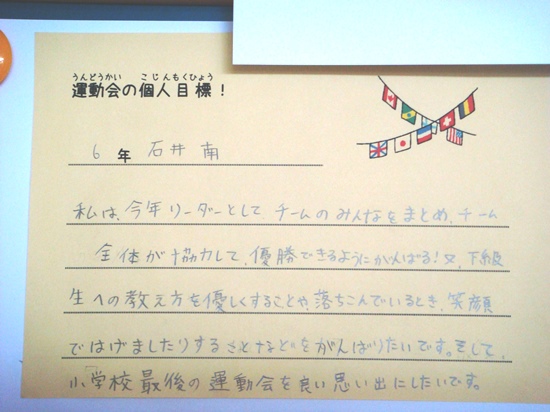 うんどうかい こじんもくひょう
運動会の個人目標！
6 年 石井 南
私は、今年リーダーとして チームの みんなを まとめ、チーム
全体が協力して、優勝できるようにがんばる！又、下級
生への教え方を優しくすることや、落ちこんでいるとき、笑顔
ではげましたりすることなどをがんばりたいです。そして、
小学校最後の運動会を良い思い出にしたいです。